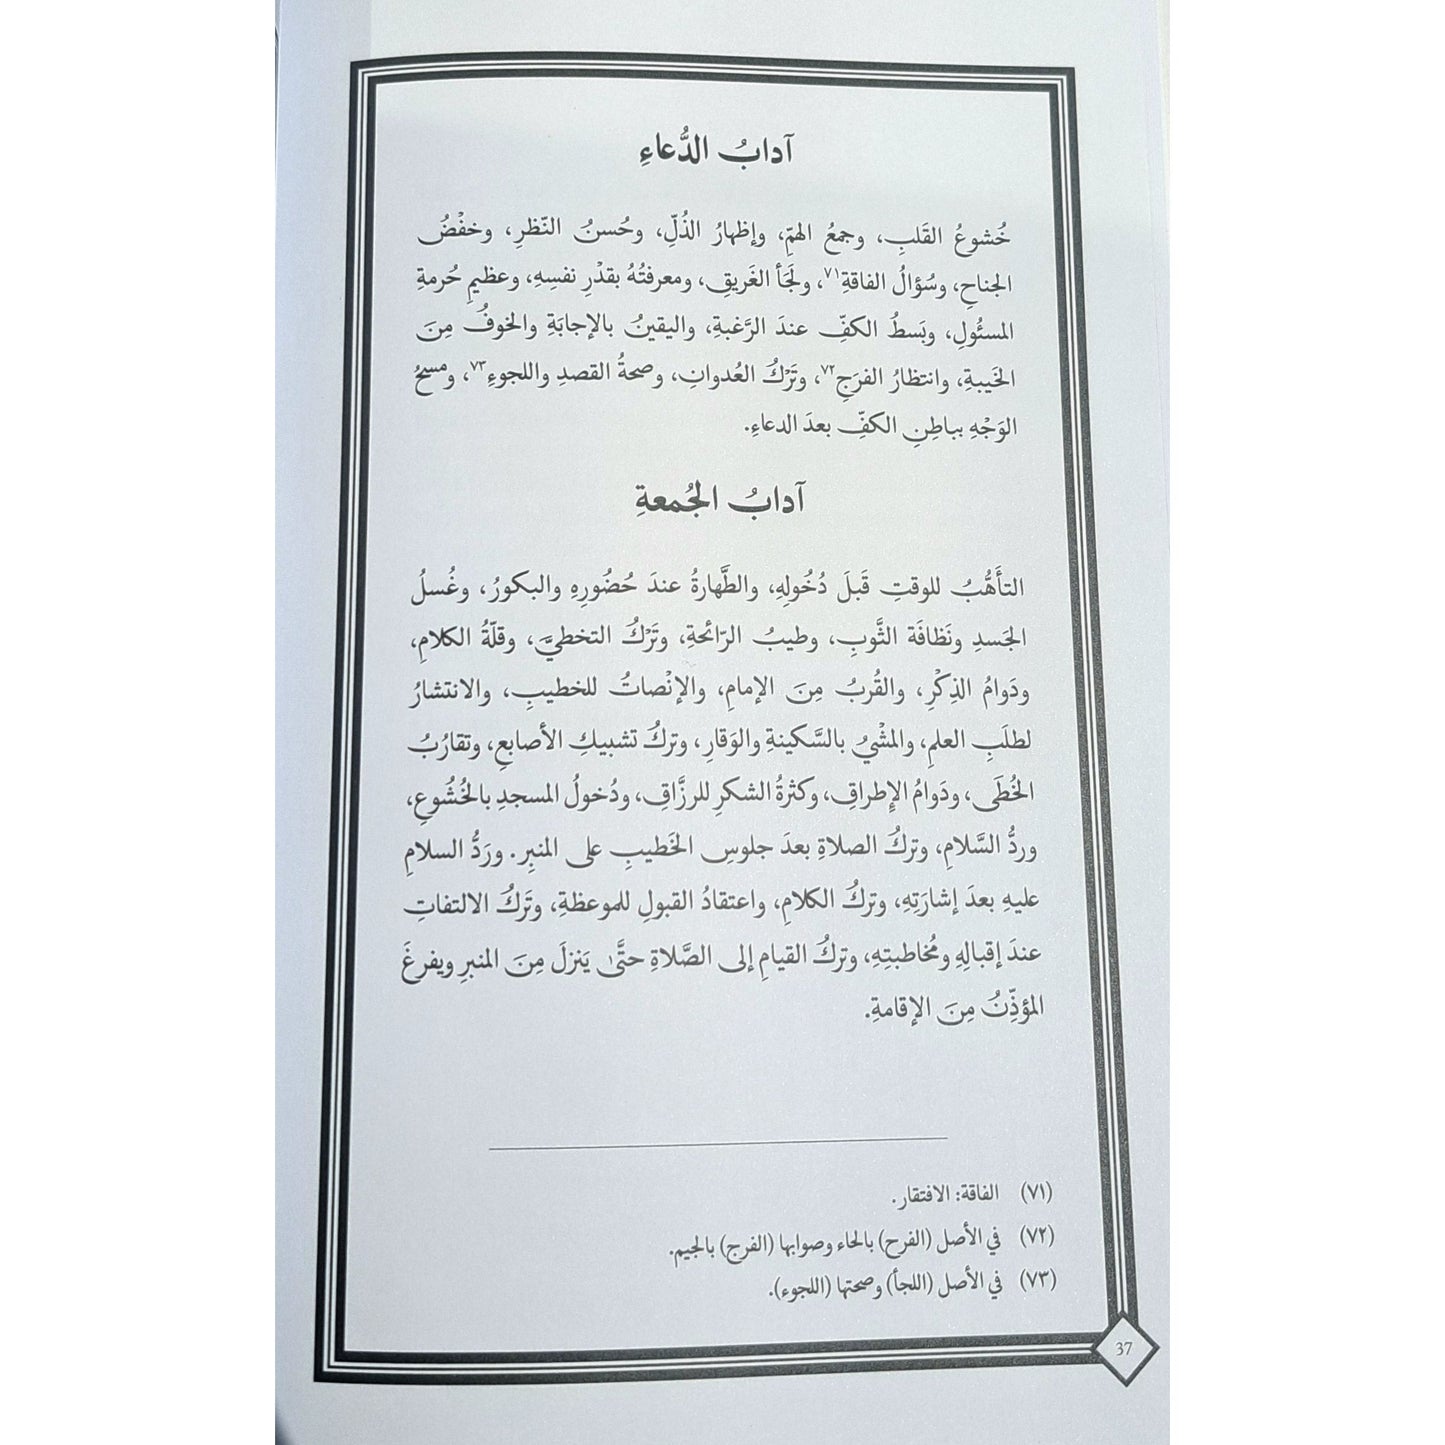 آدابُ الدُّعاءِ
خُشوعُ القَلبِ، وجمعُ الهمّ، وإظهارُ الذُلِّ، وحُسنُ النّظرِ، وخفْضُ
الجناحِ، وسُؤالُ الفاقةِ٧١، ولَجَأ الغَريقِ، ومعرفتُهُ بقدْرِ نفسِهِ، وعظيمِ حُرمةِ
المسئُولِ، وبَسطُ الكفِّ عندَ الرَّغبةِ، واليقينُ بالإجابَةِ والخوفُ مِنَ
الخَيبةِ، وانتظارُ الفرَجِ٧٢، وتَرْكُ العُدوانِ، وصحةُ القصدِ واللجوءِ٧٣، ومسحُ
الوَجْهِ بباطِنِ الكفِّ بعدَ الدعاءِ.
آدابُ الجُمعةِ
التأَهُّبُ للوقتِ قَبلَ دُخُولِهِ، والطَّهارةُ عندَ حُضُورِهِ والبكورُ، وغُسلُ
الجَسدِ ونَظافَة الثَّوبِ، وطيبُ الرّائحةِ، وتَرْكُ التخطيّ، وقلّةُ الكلامِ،
ودَوامُ الذِكْرِ، والقُربُ مِنَ الإمامِ، والإنْصاتُ للخطيبِ، والانتشارُ
لطلَبِ العلمِ، والمشْيُ بالسَّكينةِ والوَقارِ، وتركُ تشبيكِ الأصابعِ، وتقارُبُ
الخُطَى، ودَوامُ الإطراقِ، وكثرةُ الشكرِ للرزَّاقِ، ودُخولُ المسجدِ بالخُشُوعِ،
وردُّ السَّلامِ، وتركُ الصلاةِ بعدَ جلوسِ الخَطيبِ على المنبِر. ورَدُّ السلامِ
عليهِ بعدَ إشارَتِهِ، وتركُ الكلامِ، واعتقادُ القبولِ للموعظةِ، وتَركُ الالتفاتِ
عندَ إقبالِهِ ومُخاطبتِهِ، وتركُ القيامِ إلى الصَّلاةِ حتَّى يَنزلَ مِنَ المنبرِ ويفرغَ
المؤذِّنُ مِنَ الإقامةِ.
(٧١) الفاقة: الافتقار.
(٧٢) في الأصل (الفرح) بالحاء وصوابها (الفرج) بالجيم.
(٧٣) في الأصل (اللجأ) وصحتها (اللجوء).
37